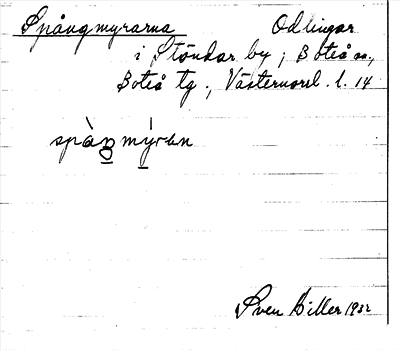 Spångmyrarna Odlingar
i Ständar by, Boteå sn,
Boteå tg., Västernorrl. l. 14
spàŋmýrɐn
Sven Hiller 1932